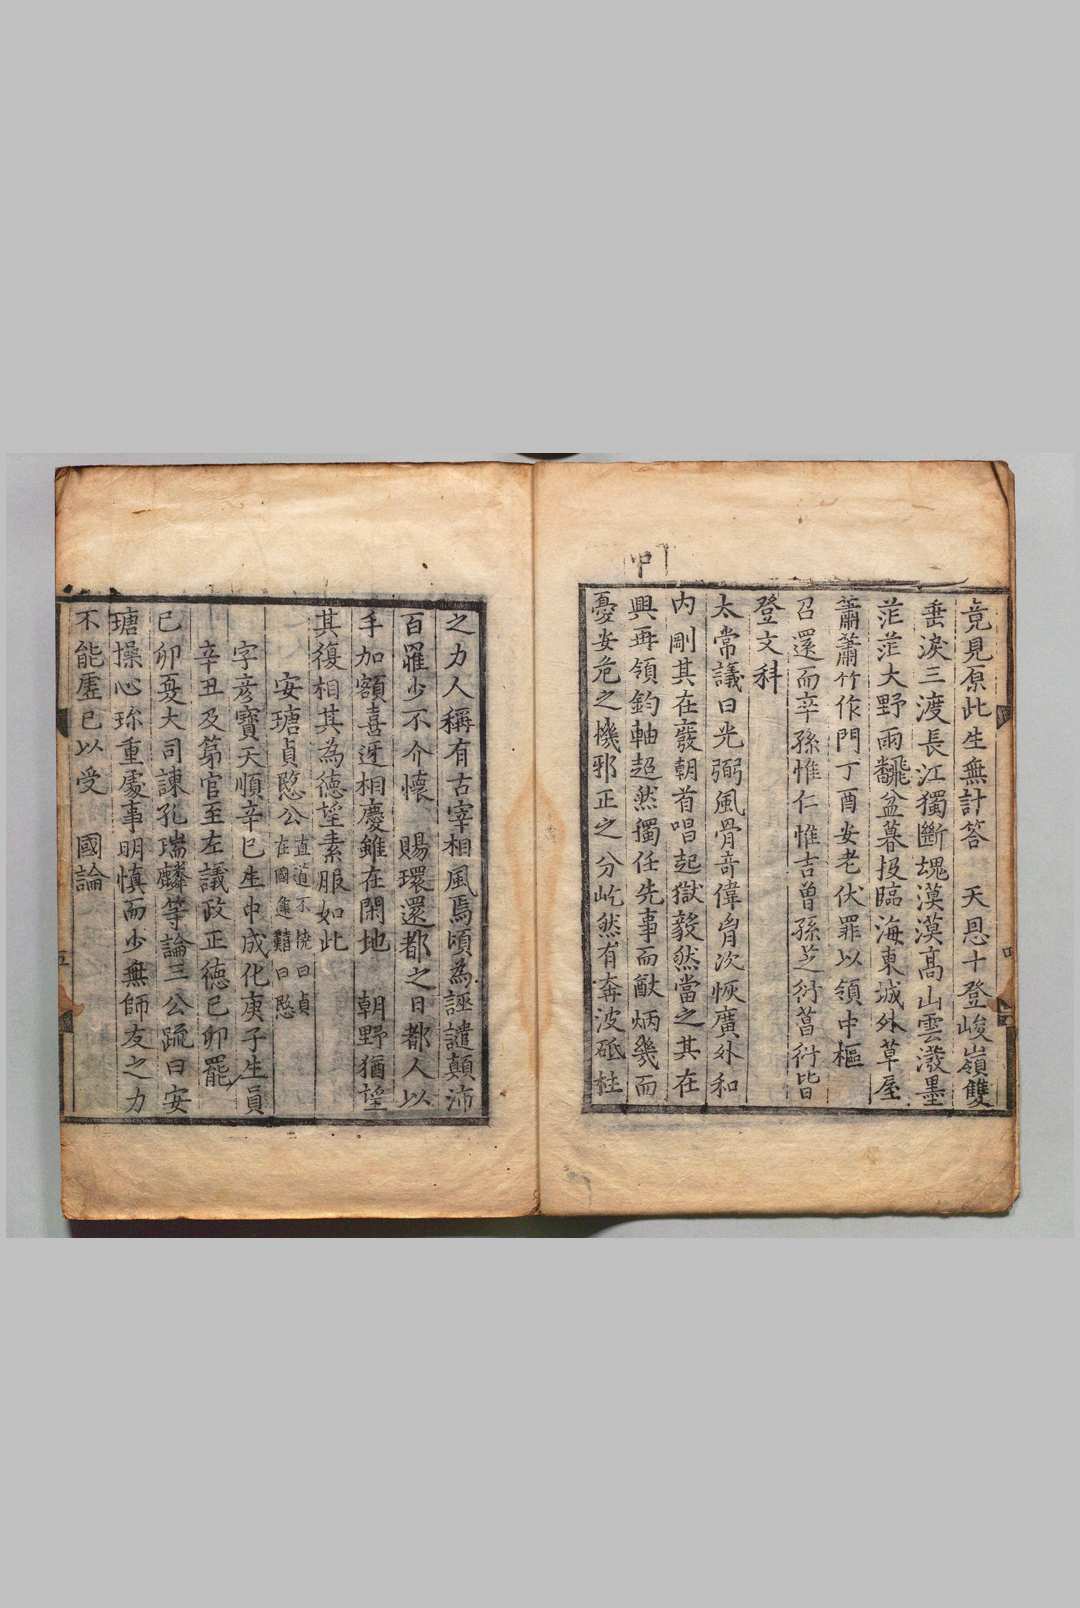 竟見原此生無計答　天恩十登峻嶺雙
垂淚三渡長江獨斷魂漠漠高山雲潑墨
茫茫大野雨飜盆暮投臨海東城外草屋
蕭蕭竹作門丁酉安老伏罪以領中樞
召還而卒孫惟仁惟吉曾孫芝衍菖衍皆
登文科
太常議曰光弼風骨竒偉胷次恢廣外和
内剛其在廢朝首唱起獄毅然當之其在
興再領鈞軸超然獨任先事而猷炳幾而
憂安危之機邪正之分屹然有奔波砥柱
之力人稱有古宰相風焉頃為誣譴顛沛
百罹少不介懷　賜環還都之日都人以
手加額喜迓相慶雖在閑地　朝野猶望
其復相其為德望素服如此
安瑭貞愍公直道不撓曰貞
在國逢囏曰愍
字彦寶天順辛巳生中成化庚子生員
辛丑及第官至左議政正德己卯罷
己卯夏大司諫孔瑞麟等論三公䟽曰安
瑭操心珎重處事明慎而少無師友之力
不能虛己以受　國論
四
五